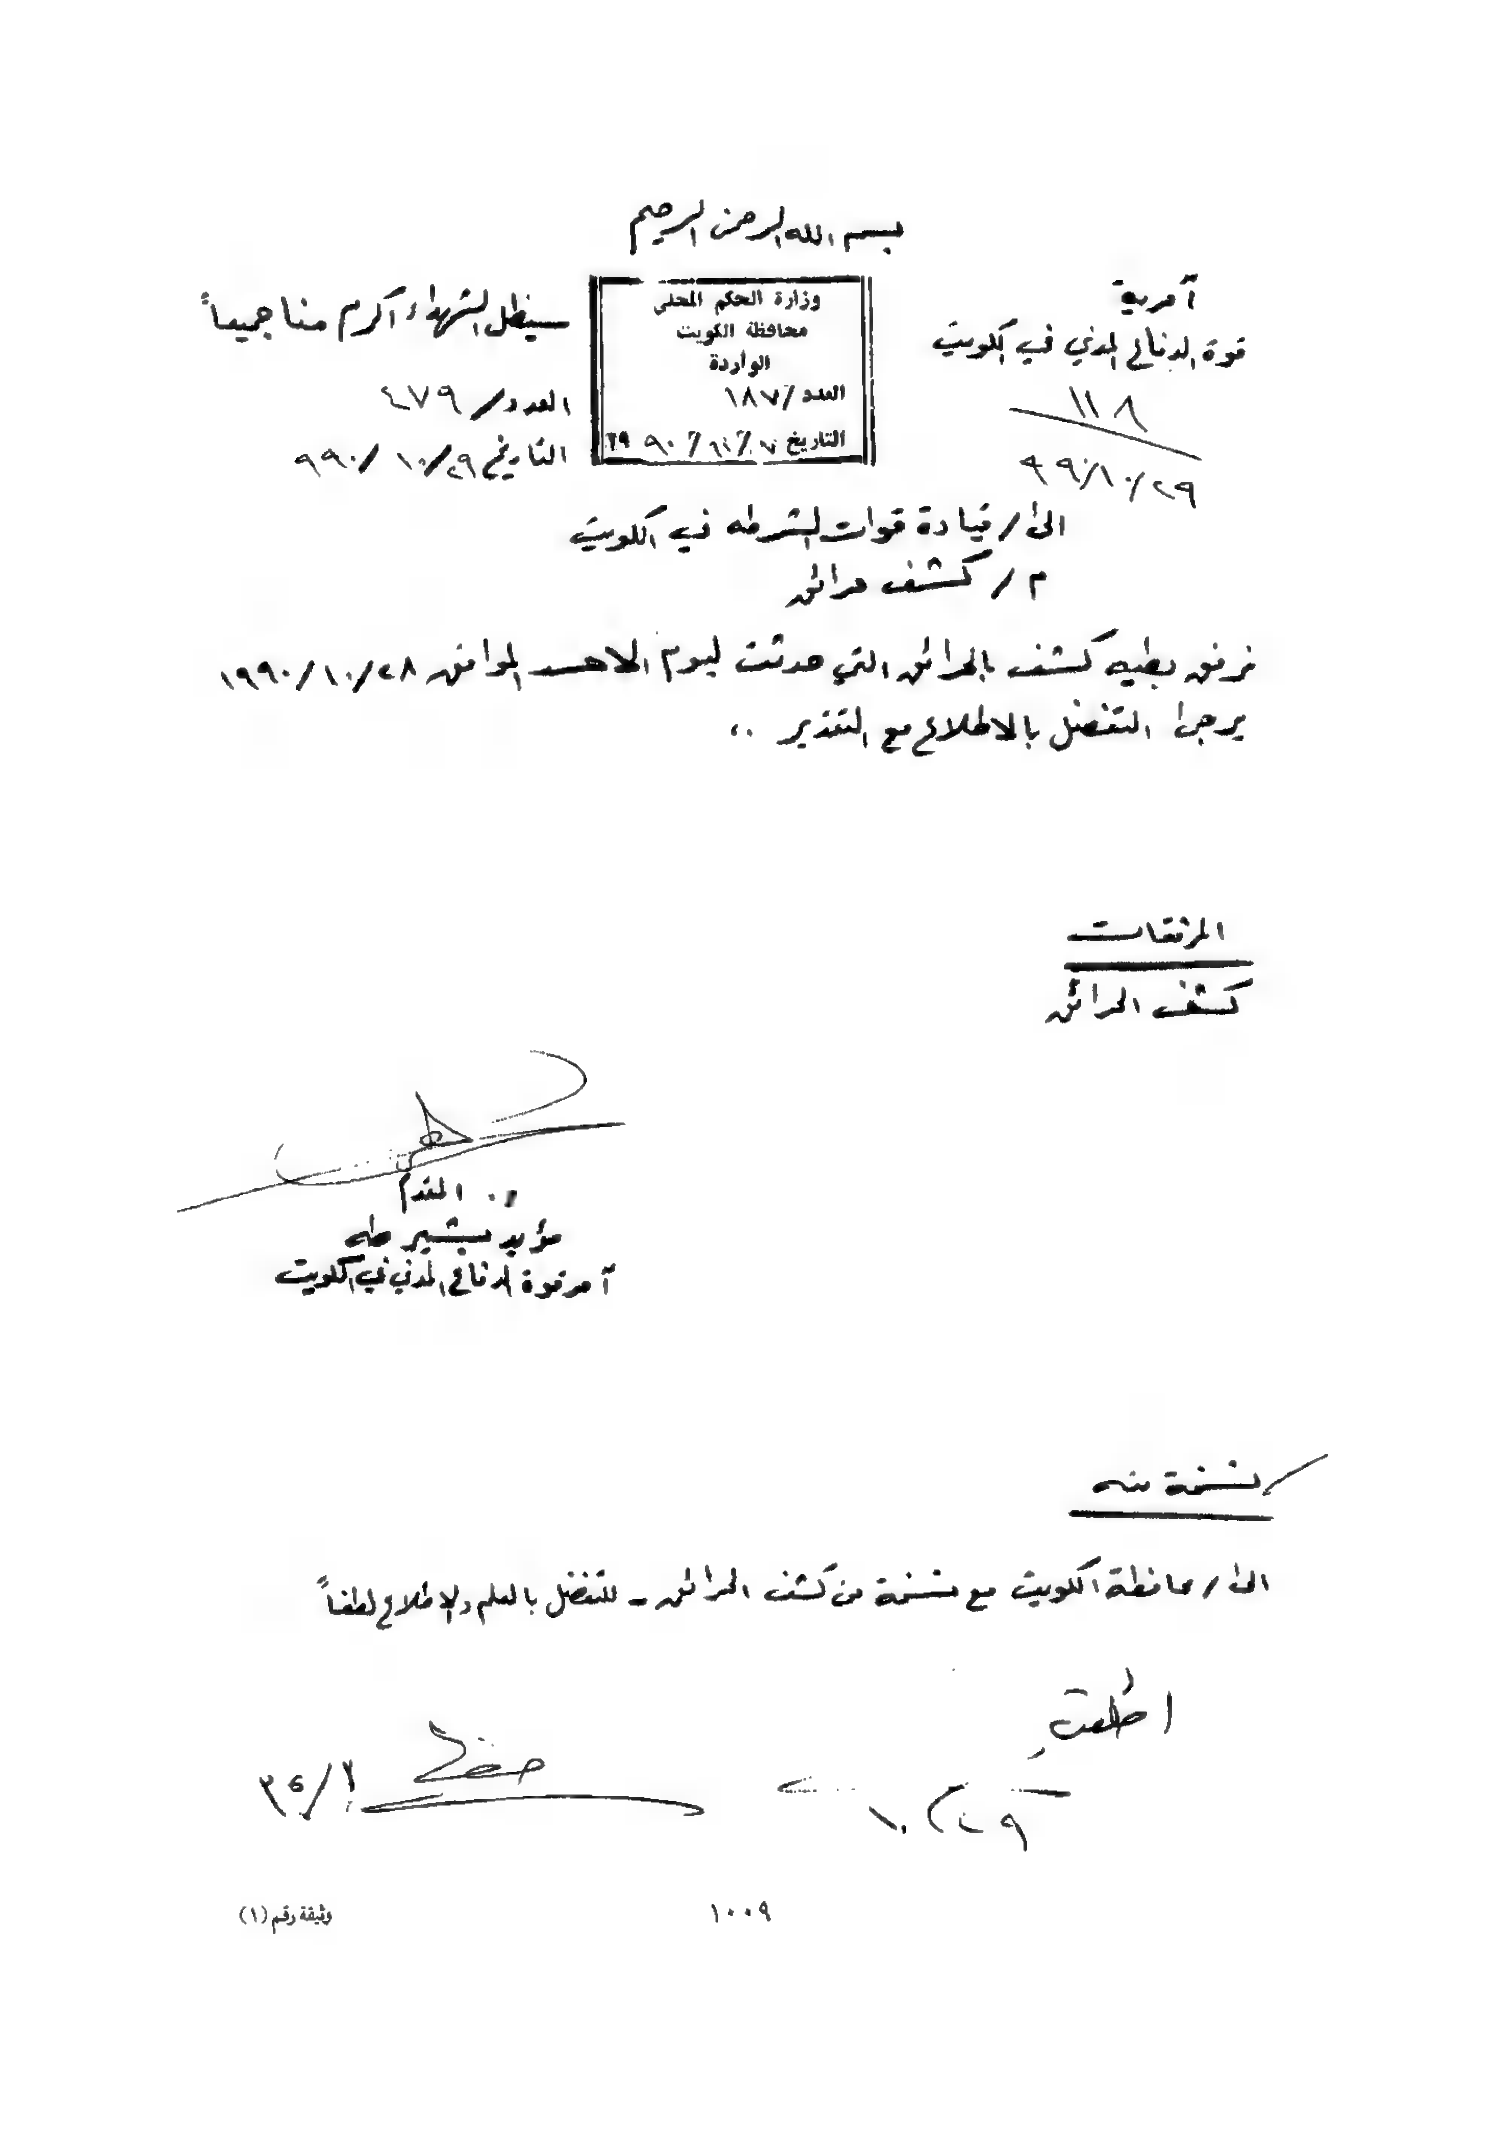 بسم الله الرحمن الرحيم
آمرية
قوة الدفاع المدني في الكويت
١١٨
٩٩٠/١٠/٢٩
وزارة الحكم المحلي
محافظة الكويت
الواردة
العدد/١٨٧
التاريخ
سيظل الشهداء أكرم منا جميعاً
العدد/٤٧٩
التاريخ ٩٩٠/١٠/٢٩
الى/ قيادة قوات الشرطه في الكويت
م/ كشف حرائق
نرفق بطيه كشف بالحرائق التي حدثت ليوم الاحد الموافق ١٩٩٠/١٠/٢٨
يرجى التفضل بالاطلاع مع التقدير ..
المرفقات
كشف الحرائق
المقدم
مؤيد بشير طه
آمر قوة الدفاع المدني في الكويت
نسخة منه
الى/ محافظة الكويت مع نسخة من كشف الحرائق - للتفضل بالعلم والاطلاع لطفاً
اطلعت
١٠/٢٩
حفظ
١٠٠٩
وثيقة رقم (١)